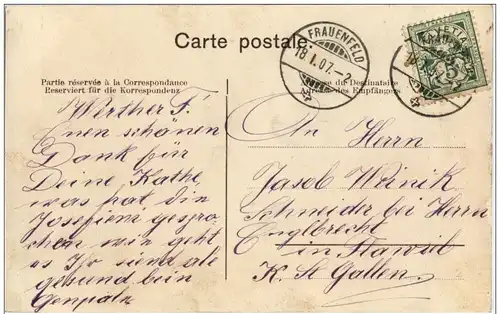 Carte postale.
FRAUENFELD
18.I.07.-2
5
Partie réservée à la Correspondance
Reserviert für die Korrespondenz
Adresse du Destinataire
Adresse des Empfängers
Werther F!
Einen schönen
Dank für
Deine Kathe
was hat die
Josefiem gespro
chem wie geht
es Ihr siend ale
gesund bein
An Herrn
Jacob Weinik
Schneider bei Herrn
Englbrecht
in Flawil
K. St Gallen.